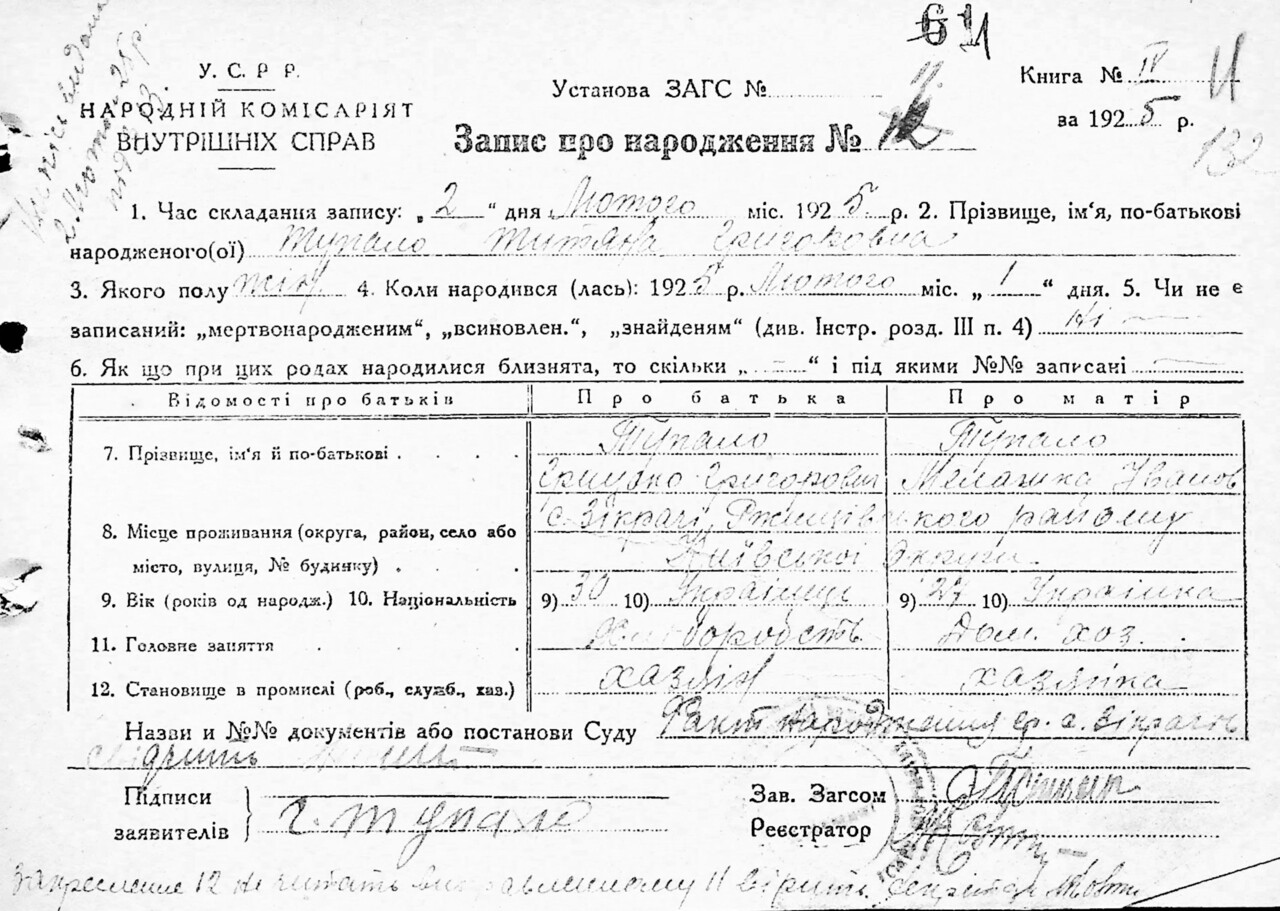 У. С. Р Р.
НАРОДНІЙ КОМІСАРІЯТ
ВНУТРІШНІХ СПРАВ
Установа ЗАГС №
Запис про народження № 12
11
Книга № IV
за 1925 р.
132
1. Час складання запису: „2“ дня Лютого міс. 1925 р. 2. Прізвище, ім'я, по-батькові
народженого(ої) Тупало Титяна Григоровна
3. Якого полу жін. 4. Коли народився (лась): 1925 р. Лютого міс. „1“ дня. 5. Чи не є
записаний: „мертвонародженим“, „всиновлен.“, „знайденям“ (див. Інстр. розд. III п. 4) Ні
6. Як що при цих родах народилися близнята, то скільки „ – “ і під якими №№ записані
Відомості про батьків Про батька Про матір
7. Прізвище, ім'я й по-батькові Тупало Тупало
Григорович Меланка Іванов
8. Місце проживання (округа, район, село або с. Зікрачі, Ржищівського району
місто, вулиця, № будинку) Київської Округи
9. Вік (років од народж.) 10. Національність 9) 30 10) Украінець 9) 27 10) Украінка
11. Головне заняття Дом. хоз.
12. Становище в промислі (роб., служб., хаз.) хазяїн хазяйка
Назви и №№ документів або постанови Суду Факт народження гр. с. Зікрачів
свідчить
Підписи
заявителів Г. Тупало
Зав. Загсом
Реєстратор
12 не читать 11 вірить. Секретар